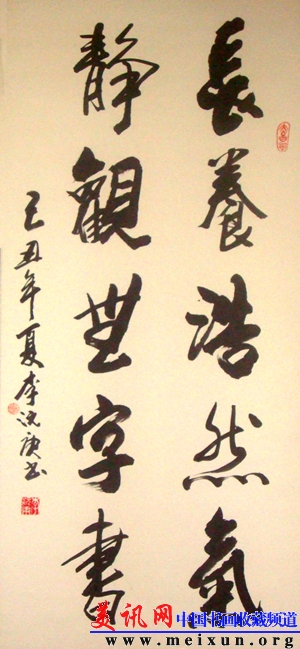 長養浩然氣
靜觀無字書
己丑年夏李
庚书
美讯网
中国书画收藏频道
www.meixun.org